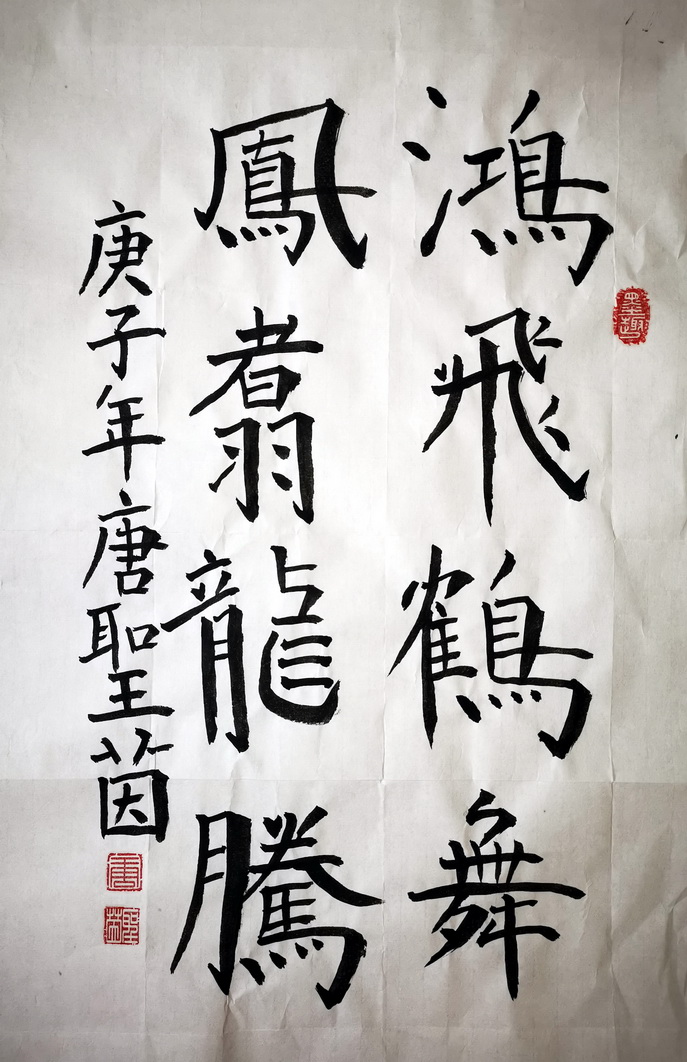 鴻飛鶴舞
鳳翥龍騰
庚子年唐聖茵
墨趣